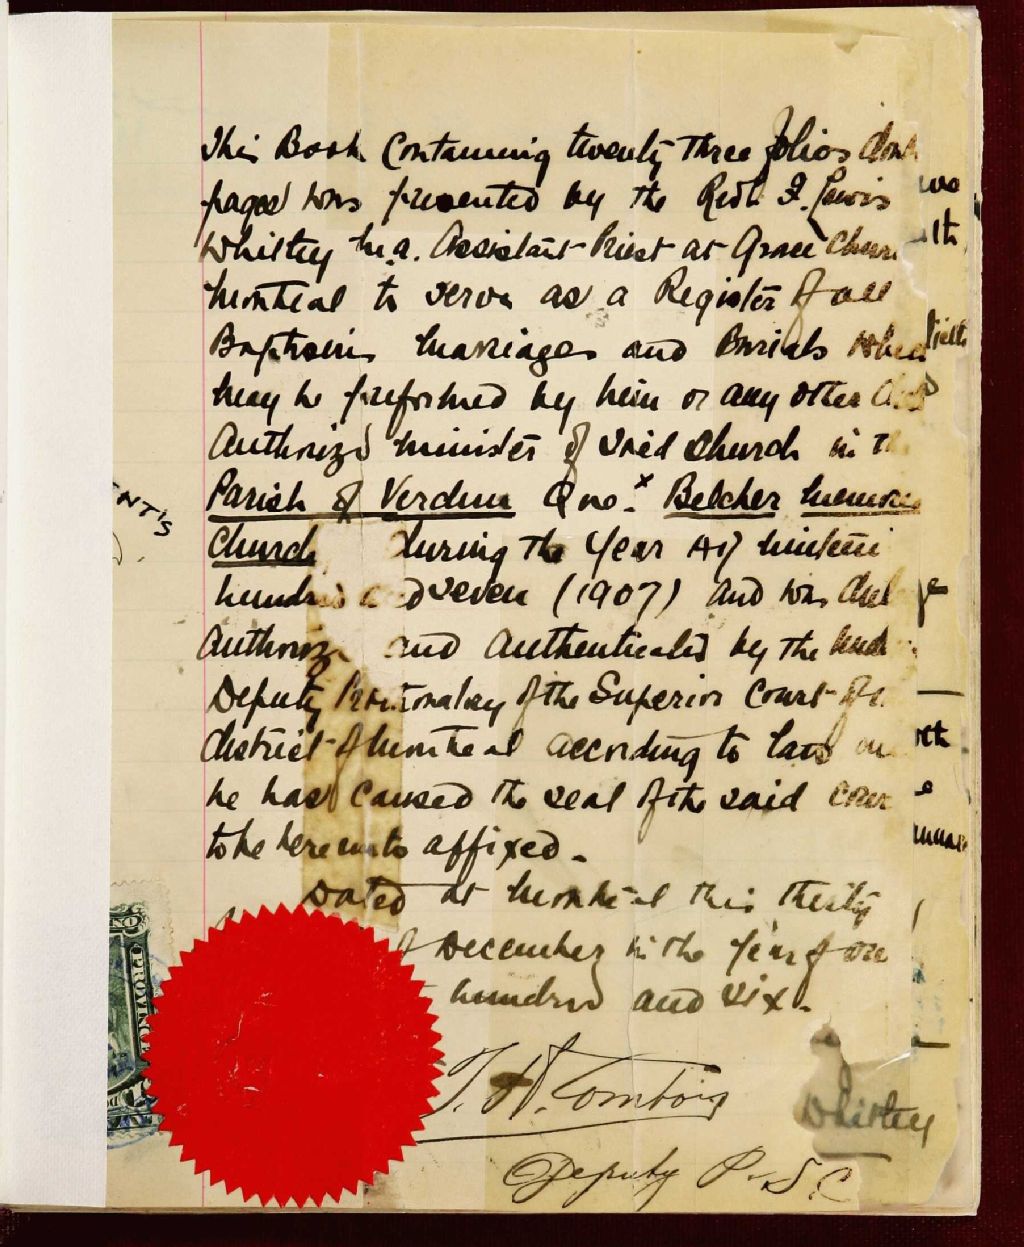 This Book Containing twenty three folios
pages was presented by the Revd. F. Lewis
Whitley M.A. Assistant Priest at Grace Church
Montreal to serve as a Register of all
Baptisms Marriages and Burials which
may be preformed by him or any other
Authorized minister of said Church in the
Parish of Verdun Que. x Belcher Memorial
Church during the Year of nineteen
hundred and seven (1907) and was duly
Authorized and Authenticated by the
Deputy Prothonotary of the Superior Court of
district of Montreal according to law
he has caused the seal of the said Court
to be hereunto affixed.
Dated at Montreal this thirty
of December in the Year of our
hundred and six.
Deputy P.S.C
Whitley
ENT'S
PROVINCE